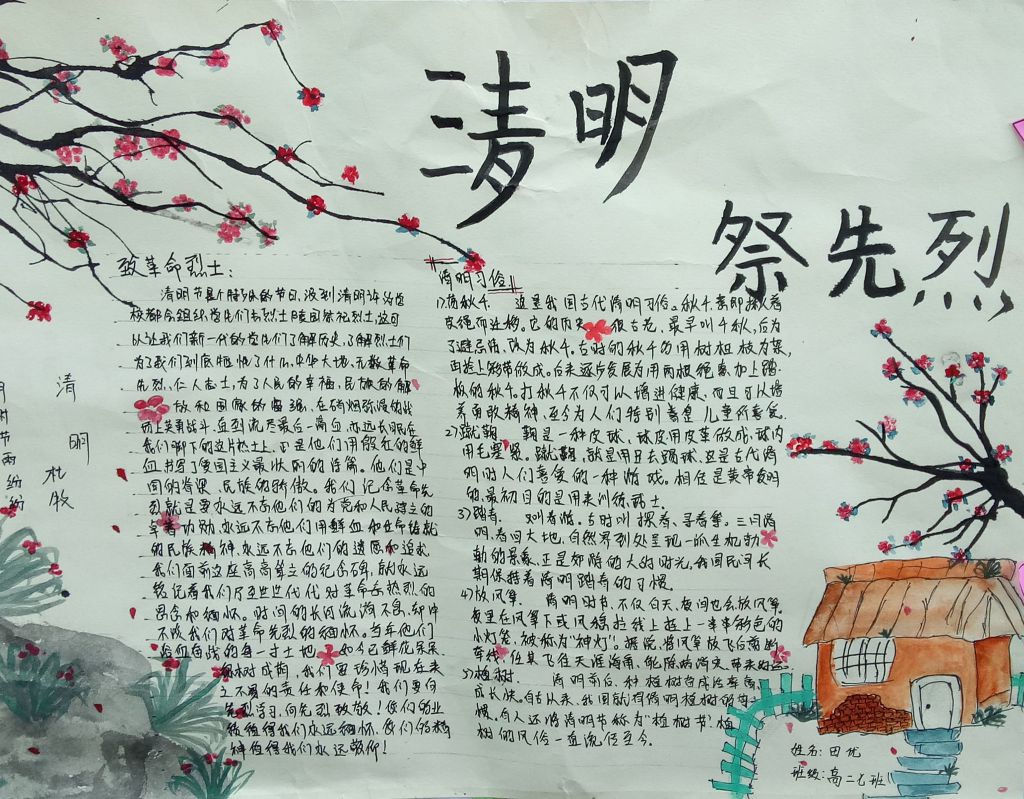 清明
祭先烈
致革命烈士：
清明节是个特殊的节日，没到清明许多学
校都会组织学生们去烈士陵园祭祀烈士，这可
以让我们新一代的学生们了解历史，了解烈士们
为了我们到底牺牲了什么。中华大地，无数革命
先烈、仁人志士，为了人民的幸福，民族的解
放和国家的富强，在硝烟弥漫的战
场上英勇战斗，直到流尽最后一滴血，永远长眠在
我们脚下的这片热土上，正是他们用殷红的鲜
血书写了爱国主义最壮丽的诗篇。他们是中
国的脊梁、民族的骄傲。我们记念革命先
烈就是要永远不忘他们的为党和人民建立的
卓著功勋，永远不忘他们用鲜血和生命铸就
的民族精神，永远不忘他们的遗愿和追求
我们面前这座高高耸立的纪念碑， 永远
铭记着我们 世世代代对革命先烈的
思念和缅怀。时间的长河流淌不息，却冲
不淡我们对革命先烈的缅怀。当年他们
浴血奋战的每一寸土地 如今已鲜花朵朵
绿树成荫，我们要珍惜现在来
之不易的责任和使命！我们要向
先烈学习，向先烈致敬！你们的业
绩值得我们永远缅怀，你们的精
神值得我们永远敬仰！
清明习俗
1)荡秋千. 这是我国古代清明习俗。秋千，意即揪着
皮绳而迁移。它的历史 很古老，最早叫千秋，后为
了避忌讳，改为秋千。古时的秋千多用树桠枝为架，
再拴上彩带做成。后来逐步发展为用两根绳索加上踏
板的秋千。打秋千不仅可以增进健康，而且可以培
养勇敢精神，至今为人们特别喜爱 儿童所喜爱.
2)蹴鞠. 鞠是一种皮球，球皮用皮革做成，球内
用毛塞紧。蹴鞠，就是用足去踢球，这是古代清
明时人们喜爱的一种游戏。相传是黄帝发明
的，最初目的是用来训练武士.
3)踏青. 又叫春游。古时叫探春、寻春等。三月清
明，春回大地，自然界到处呈现一派生机勃
勃的景象，正是郊游的大好时光，我国民间长
期保持着清明踏青的习惯.
4)放风筝. 清明时节，不仅白天，夜间也会放风筝.
夜里在风筝下或风稳拉线上挂上一串串彩色的
小灯笼，被称为“神灯”。据说，将风筝放飞后剪断
牵线，任其飞往天涯海角，能除病消灾，带来好运
5)植树. 清明前后，种植树苗成活率高，
成长快，自古以来，我国就有清明植树的习
惯，有人还将清明节称为“植树节”，植
树的风俗一直流传至今.
清明
杜牧
时节雨纷纷
姓名：田优
班级：高二乙班